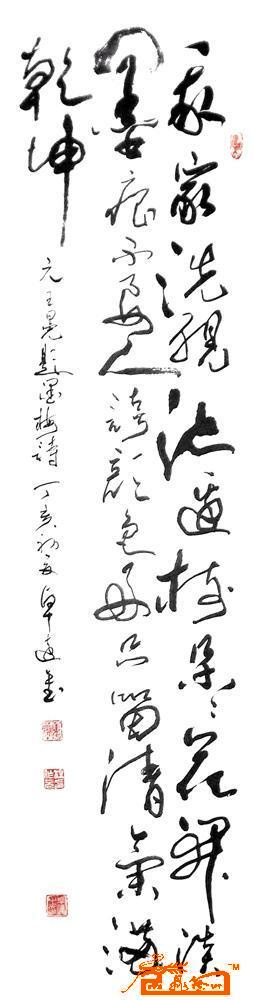 我家洗砚池边树朵朵花开淡
墨痕不要人誇颜色好只留清气满
乾坤
元王冕题墨梅诗丁亥初夏